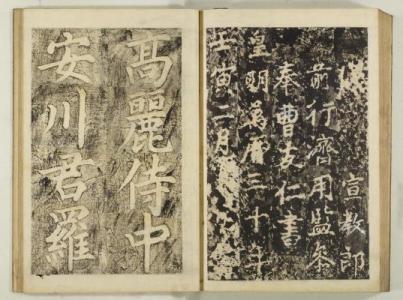 宣教郎
前行齊用監參
奉曹友仁書
皇明萬曆三十年
壬寅二月
高麗侍中
安川君羅